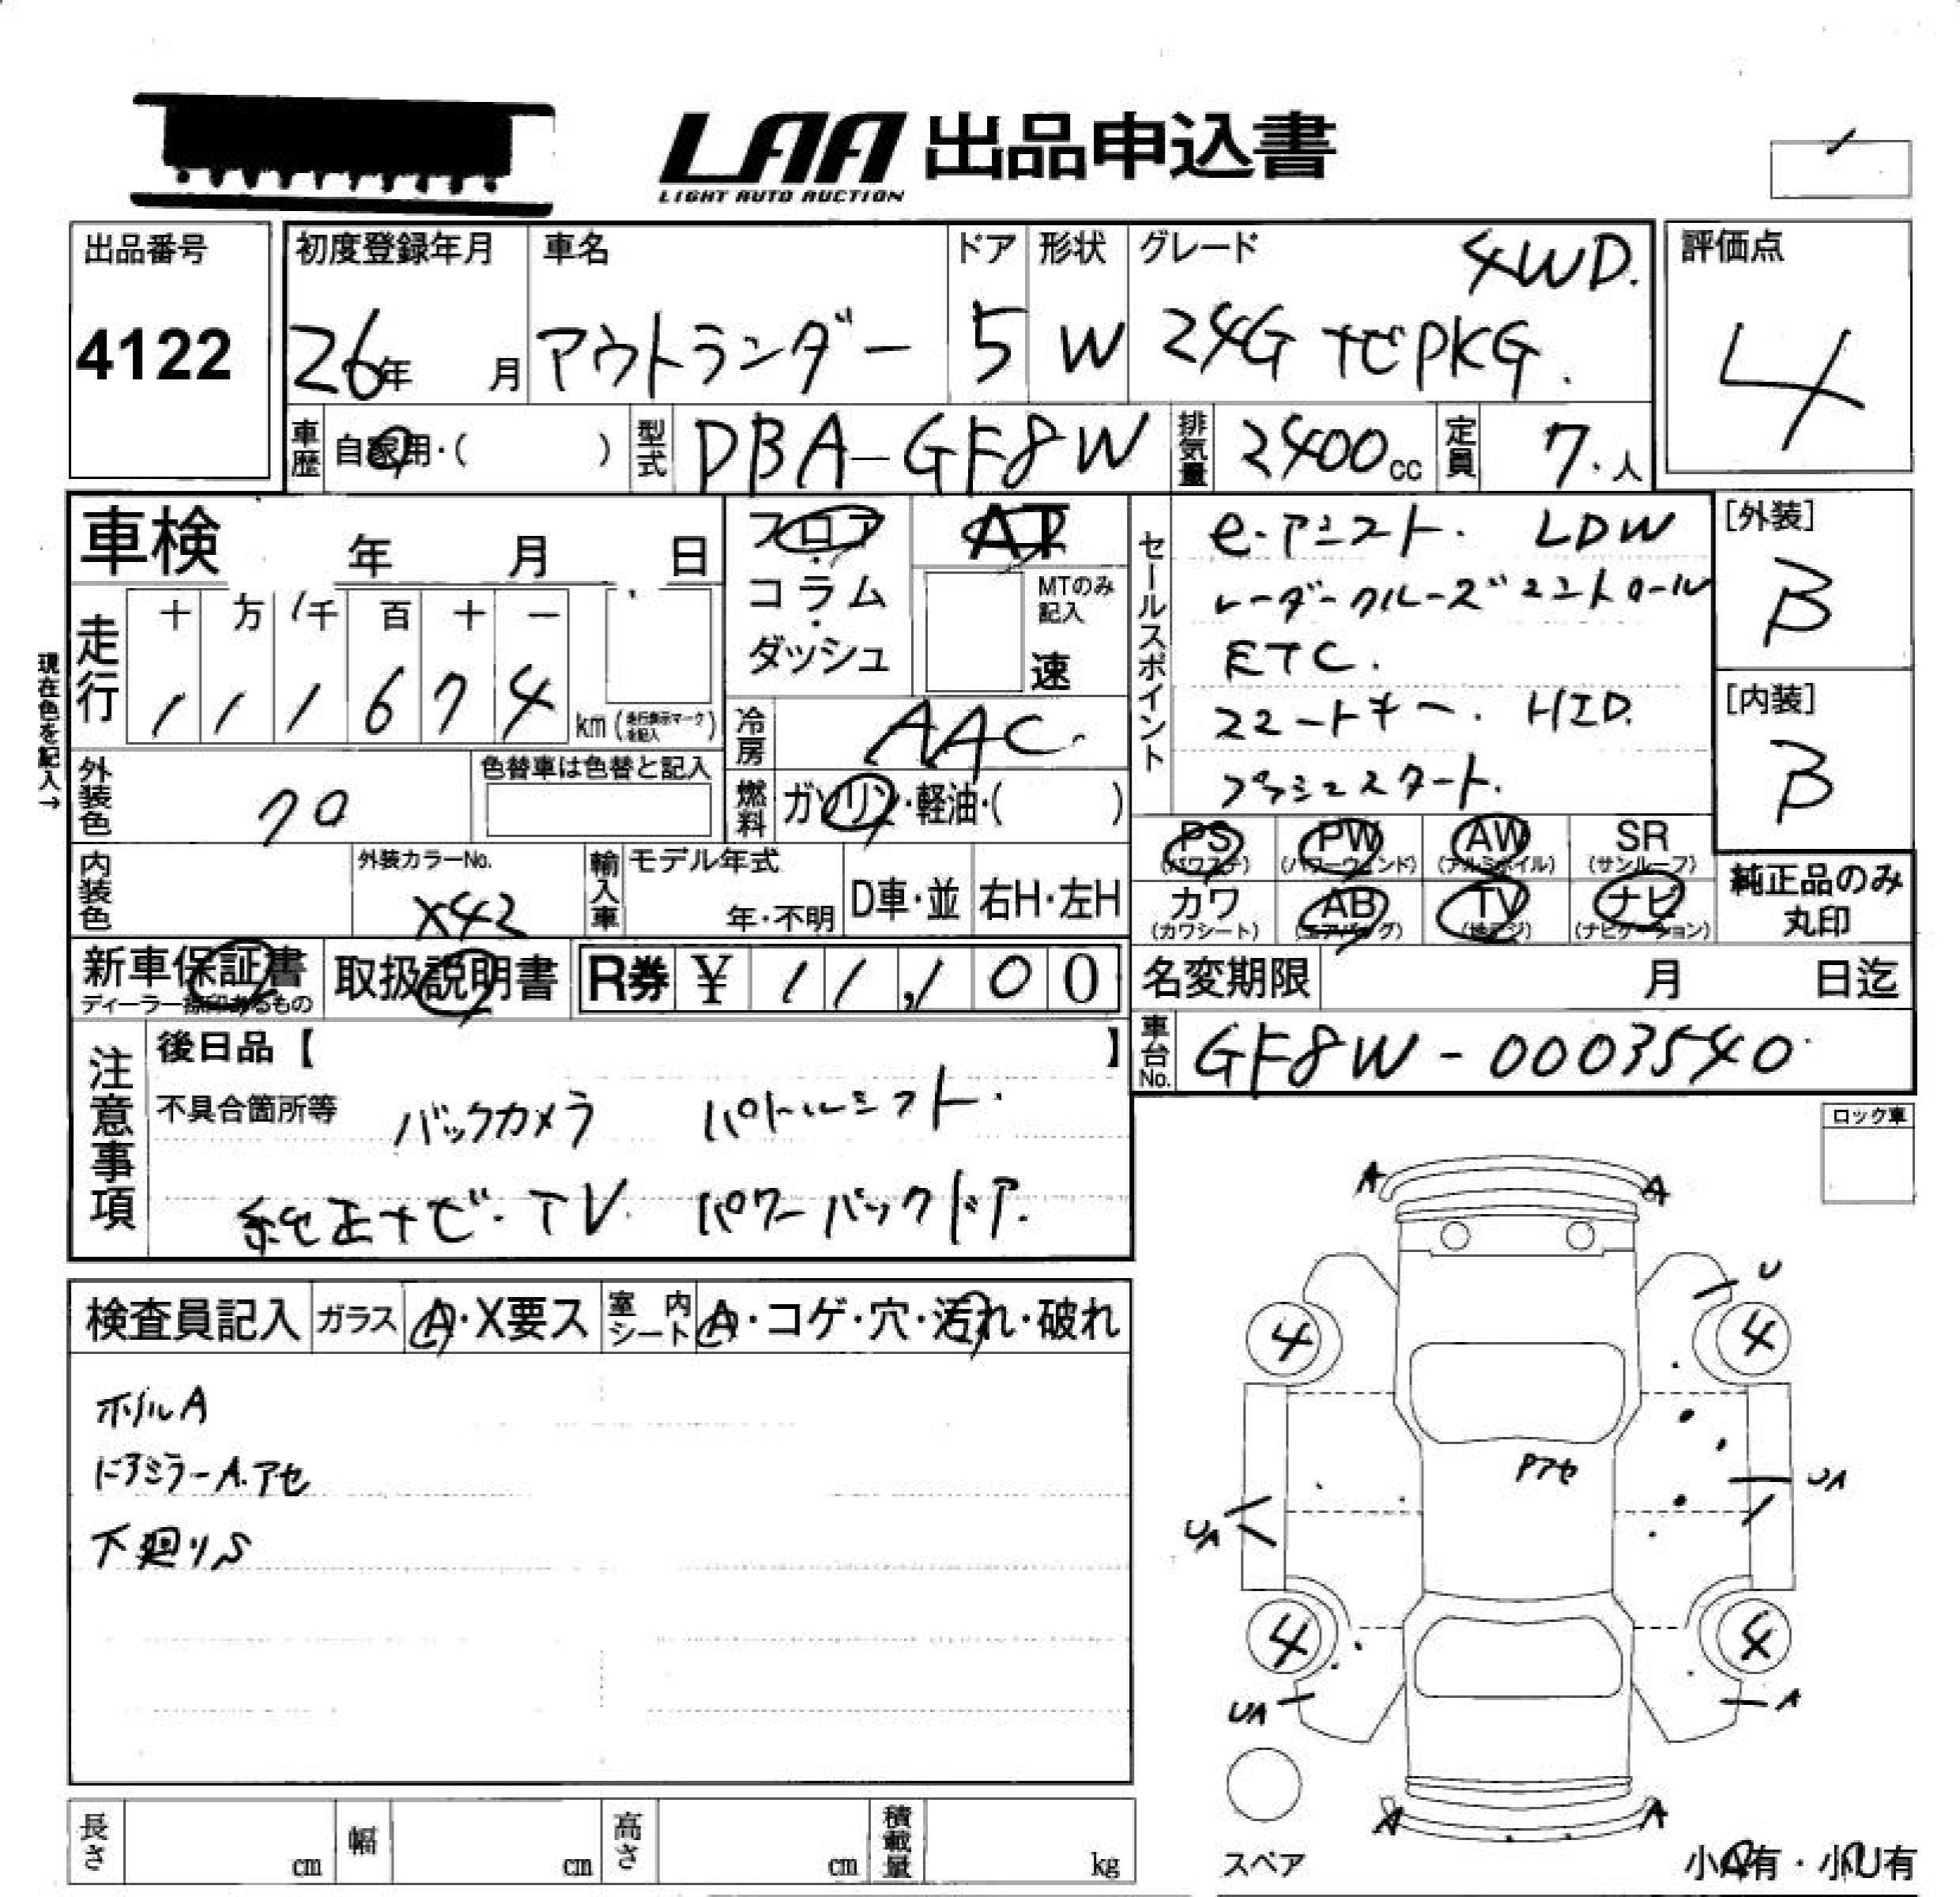 LAA 出品申込書
LIGHT AUTO AUCTION
出品番号
4122
初度登録年月
26年 月
車名
アウトランダー
ドア
5
形状
W
グレード
4WD.
24G ナビPKG.
評価点
4
車歴 自家用・( )
型式 DBA-GF8W
排気量 2400cc
定員 7.人
車検 年 月 日
フロア・コラム・ダッシュ
AT
MTのみ記入
速
セールスポイント
e-アシスト. LDW
レーダークルーズコントロール
ETC.
スマートキー. HID.
プッシュスタート.
[外装]
B
[内装]
B
現在色を記入→
走行
十 万 千 百 十 一
1 1 1 6 7 4 km(走行表示マークを記入)
冷房 AAC.
外装色 クロ
色替車は色替と記入
燃料 ガソリン・軽油・( )
内装色
外装カラーNo.
X42
輸入車
モデル年式
年・不明
D車・並
右H・左H
PS (パワステ)
PW (パワーウィンド)
AW (アルミホイル)
SR (サンルーフ)
カワ (カワシート)
AB (エアバッグ)
TV (地デジ)
ナビ (ナビゲーション)
純正品のみ丸印
新車保証書
ディーラー捺印あるもの
取扱説明書
R券 ¥ 11,100
名変期限 月 日迄
車台No. GF8W-0003540
注意事項
後日品【 】
不具合箇所等
バックカメラ パドルシフト.
純正ナビ.TV. パワーバックドア.
ロック車
検査員記入
ガラス A・X要ス
室内シート A・コゲ・穴・汚れ・破れ
ホイルA
ドアミラーA.アセ
下廻りS
A A
U
4 4
Pアセ
UA
UA
4 4
UA A
A A
スペア
小A有・小U有
長さ cm
幅 cm
高さ cm
積載量 kg